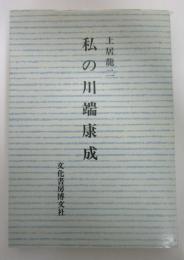 土居龍二
私の川端康成
文化書房博文社